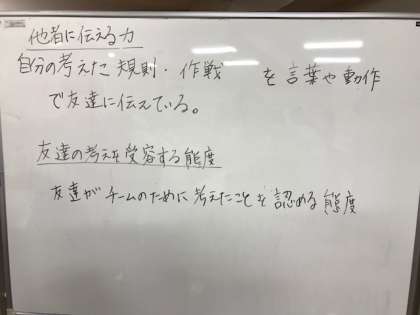 他者に伝える力
自分の考えた規則・作戦 を言葉や動作
で友達に伝えている。
友達の考えを受容する態度
友達がチームのために考えたことを認める態度